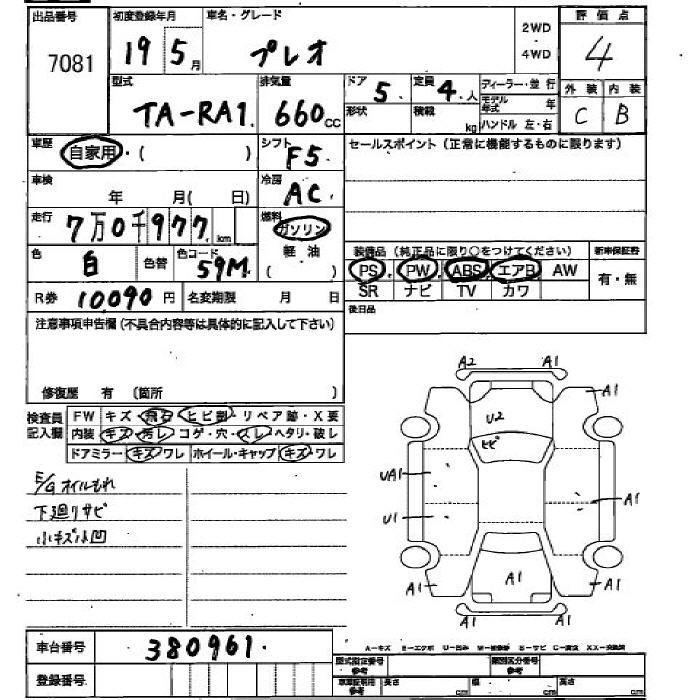 出品番号 初度登録年月 車名・グレード 2WD 評価点
7081 19 5月 プレオ 4WD 4
型式 排気量 ドア 5. 定員 4.人 ディーラー・並行 外装 内装
TA-RA1. 660cc 形状 積載 kg モデル年式 年 C B
ハンドル 左・右
車歴 自家用・( ) シフト F5. セールスポイント(正常に機能するものに限ります)
車検 年 月( 日) 冷房 AC.
走行 7万0千977km 燃料 ガソリン
軽油
( )
色 白 色替 色コード 59M. 装備品(純正品に限り○をつけてください) 新車保証書
PS・PW・ABS・エアB AW 有・無
SR ナビ TV カワ
R券 10090円 名変期限 月 日 後日品
注意事項申告欄(不具合内容等は具体的に記入して下さい)
修復歴 有(箇所 )
検査員記入欄 FW キズ・飛石・ヒビ割・リペア跡・X要
内装 キズ・汚レ・コゲ・穴・スレ・ヘタリ・破レ
ドアミラー キズ・ワレ ホイール・キャップ キズ・ワレ
E/Gオイルもれ
下廻リサビ
小キズ小凹
A2 A1
A1
U2
ヒビ
UA1
A1
U1
A1 A1 A1
A1 A1
車台番号 380961.
登録番号
A-キズ E-エクボ U-凹み S-サビ C-腐食
型式指定番号 参考 類別区分番号 参考
参考 長さ cm 幅 cm 高さ cm